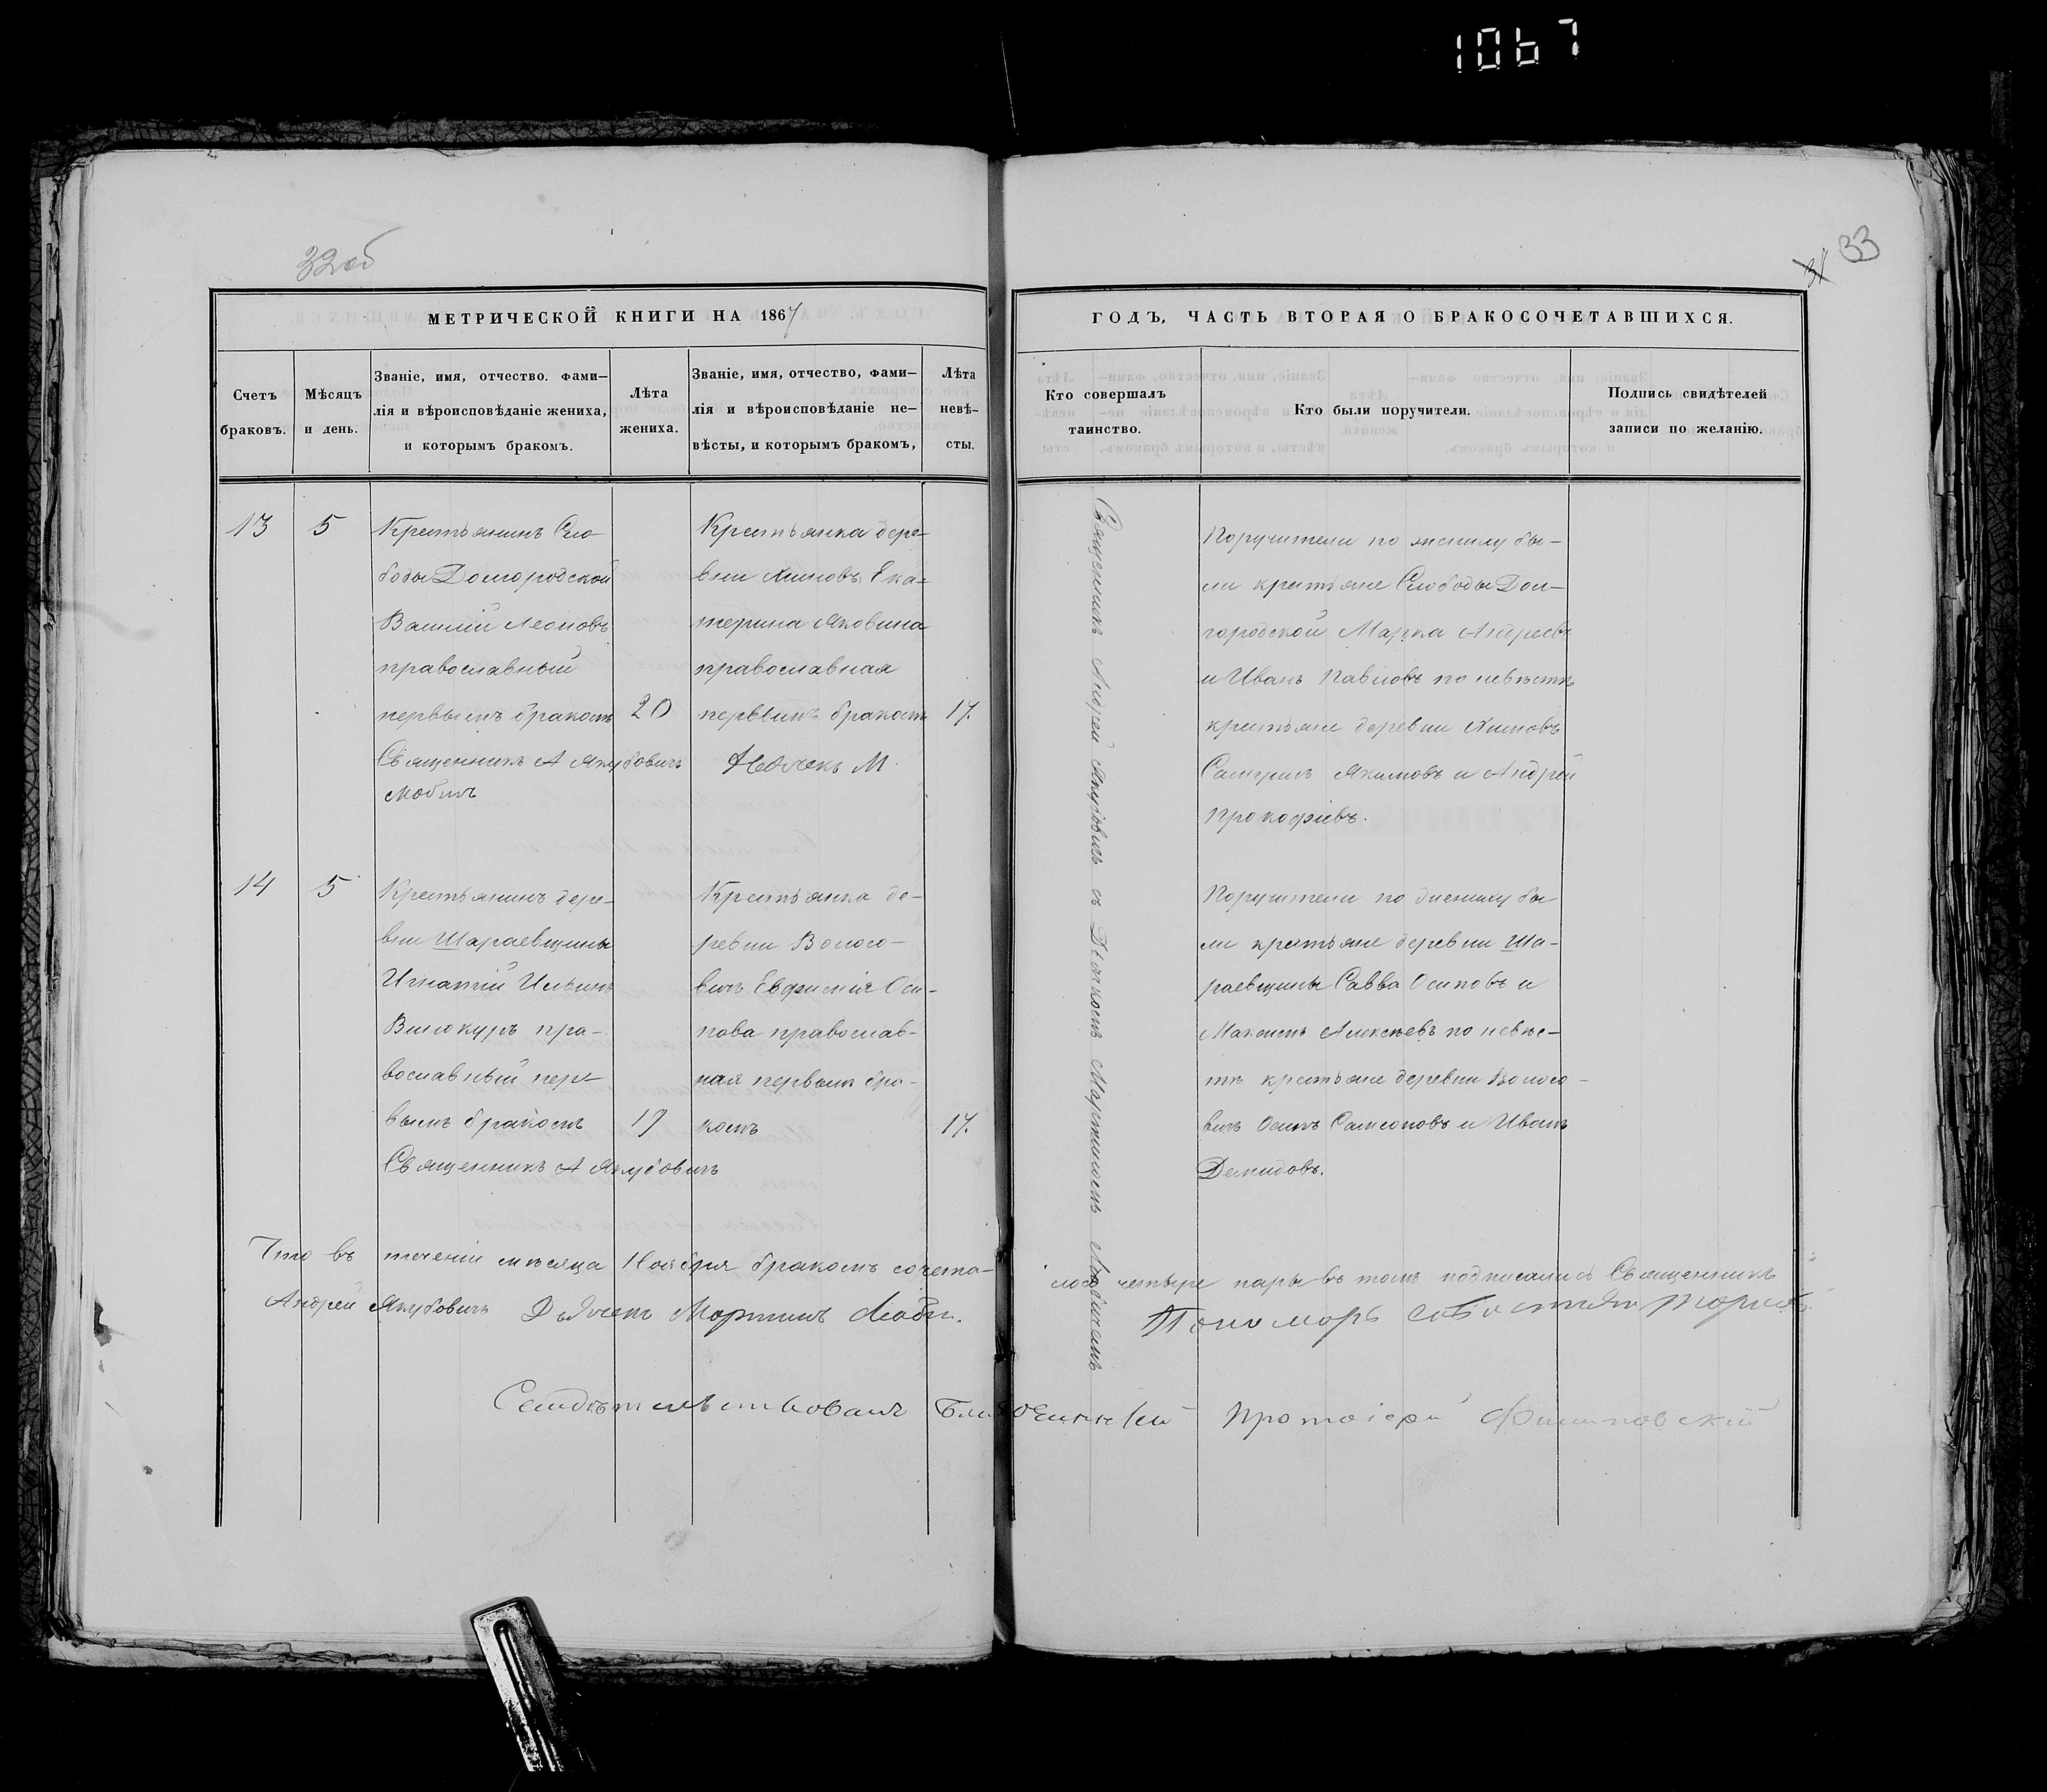 1067
32об
31 33
МЕТРИЧЕСКОЙ КНИГИ НА 1867
ГОДЪ, ЧАСТЬ ВТОРАЯ О БРАКОСОЧЕТАВШИХСЯ.
Счетъ
браковъ.
Мѣсяцъ
и день.
Званіе, имя, отчество. фами-
лія и вѣроисповѣданіе жениха,
и которымъ бракомъ.
Лѣта
жениха.
Званіе, имя, отчество, фами-
лія и вѣроисповѣданіе не-
вѣсты, и которымъ бракомъ,
Лѣта
невѣ-
сты.
Кто совершалъ
таинство.
Кто были поручители.
Подпись свидѣтелей
записи по желанію.
13
5
Крестьянинъ Сло-
боды Долгородской
Василій Леоновъ
православный
первымъ бракомъ
20
Священникъ А Якубовичъ
Крестьянка дере-
вни Ека-
терина Яковина
православная
первымъ бракомъ
17.
Священникъ Андрей Якубовичъ съ Дьячкомъ Мартиномъ
Поручители по жениху бы-
ли крестьяне Слободы Дол-
городской Марка Андреевъ
и Иванъ Павловъ по невѣстѣ
крестьяне деревни
Самуилъ Якимовъ и Андрей
Прокофіевъ.
14
5
Крестьянинъ дере-
вни Шараевщины
Игнатій Ильинъ
Винокуръ пра-
вославный пер-
вымъ бракомъ
19
Священникъ А Якубовичъ
Крестьянка де-
ревни Волосо-
вичъ Евфимія Оси-
пова православ-
ная первымъ бра-
комъ
17.
Поручители по жениху бы
ли крестьяне деревни Ша-
раевщины Савва Осиповъ и
Максимъ Алексѣевъ по невѣс-
тѣ крестьяне деревни Волосо-
вичъ Осипъ Самсоновъ и Иванъ
Демидовъ.
Что въ теченіи мѣсяца Ноября бракомъ сочета-
лось четыре пары въ томъ подписались Священникъ
Андрей Якубовичъ Дьячекъ Мартинъ
Пономарь
Свидѣтельствовалъ Благочинный Протоіерей Филиповскій